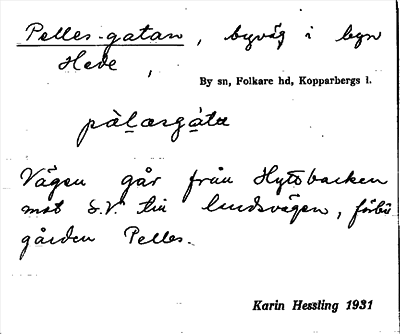 Pelles-gatan, byväg i byn
Hede,
By sn, Folkare hd, Kopparbergs l.
pàlæsgàta
Vägen går från Hyttbacken
mot S.V. till landsvägen, förbi
gården Pelles.
Karin Hessling 1931